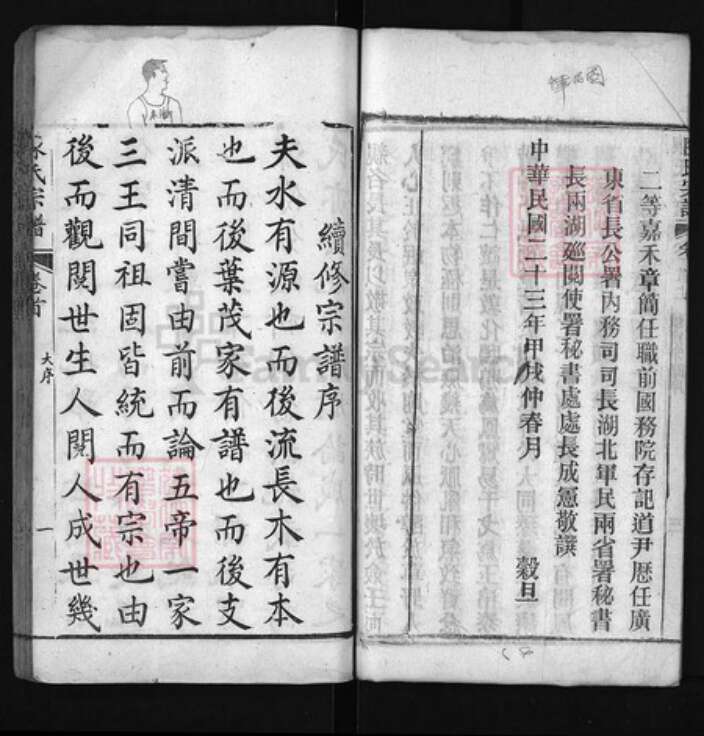 二等嘉禾章簡任職前國務院存記道尹歷任廣
東省長公署內務司司長湖北軍民兩省署秘書
長兩湖廵閱使署秘書處處長成憲敬譔
中華民國二十三年甲戌仲春月 穀旦
續修宗譜序
夫水有源也而後流長木有本
也而後葉茂家有譜也而後支
派清間嘗由前而論五帝一家
三王同祖固皆統而有宗也由
後而觀閱世生人閱人成世幾
氏宗譜
卷首
大序
一
FamilySearch